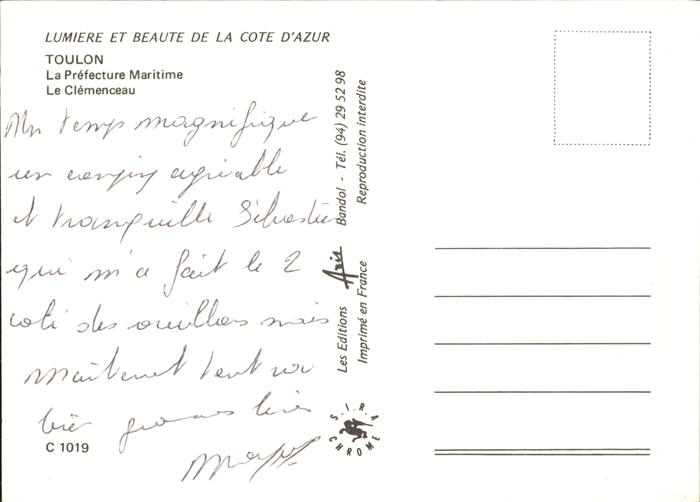 LUMIERE ET BEAUTE DE LA COTE D'AZUR
TOULON
La Préfecture Maritime
Le Clémenceau
Un temps magnifique
un camping agréable
et tranquille Sébastien
qui m'a fait le 2
coté des oreillons mais
Maintenant tout va
bien grosses bises
C 1019
Les Editions Azis Bandol - Tél. (94) 29 52 98
Imprimé en France Reproduction interdite
S.I.R.A.
CHROME